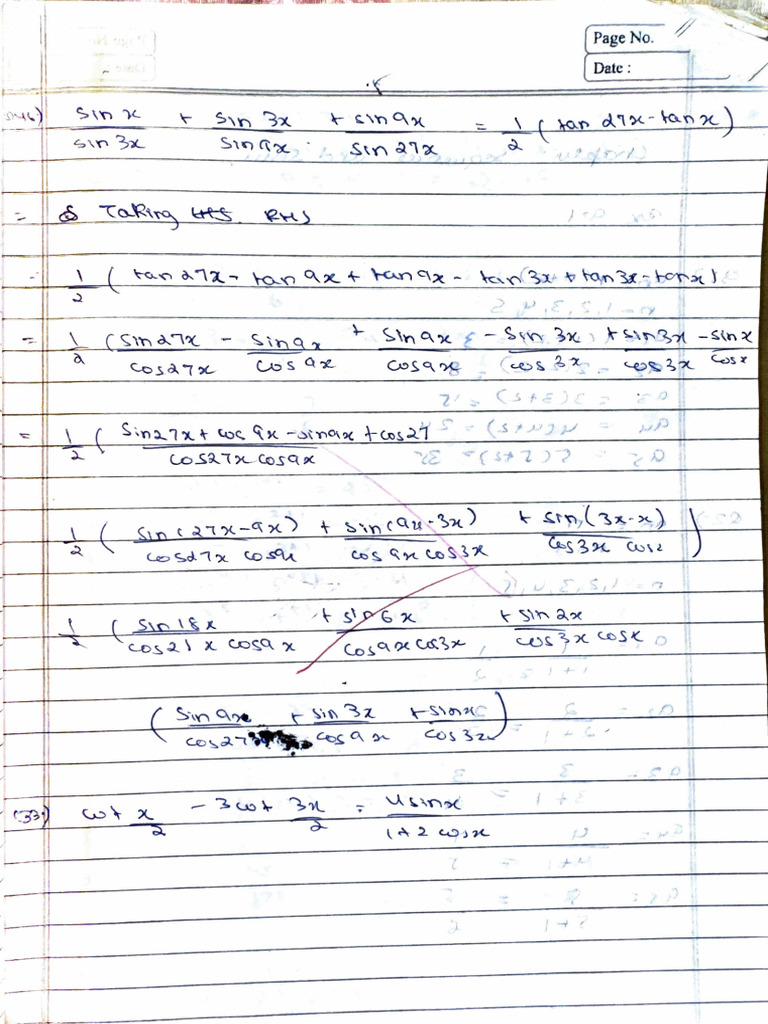 Page No.
Date :
sin x / sin 3x + sin 3x / sin 9x + sin 9x / sin 27x = 1/2 (tan 27x - tan x)
= Taking RHS
1/2 ( tan 27x - tan 9x + tan 9x - tan 3x + tan 3x - tan x )
= 1/2 ( sin 27x / cos 27x - sin 9x / cos 9x + sin 9x / cos 9x - sin 3x / cos 3x + sin 3x / cos 3x - sin x / cos x
= 1/2 ( sin 27x + cos 9x - sin 9x + cos 27 / cos 27x cos 9x
1/2 ( sin (27x - 9x) / cos 27x cos 9x + sin (9x - 3x) / cos 9x cos 3x + sin (3x - x) / cos 3x cos x )
1/2 ( sin 18x / cos 27x cos 9x + sin 6x / cos 9x cos 3x + sin 2x / cos 3x cos x
( sin 9x / cos 27x + sin 3x / cos 9x + sin x / cos 3x )
(33.) cot x/2 - 3 cot 3x/2 = 4 sin x / 1 + 2 cos x